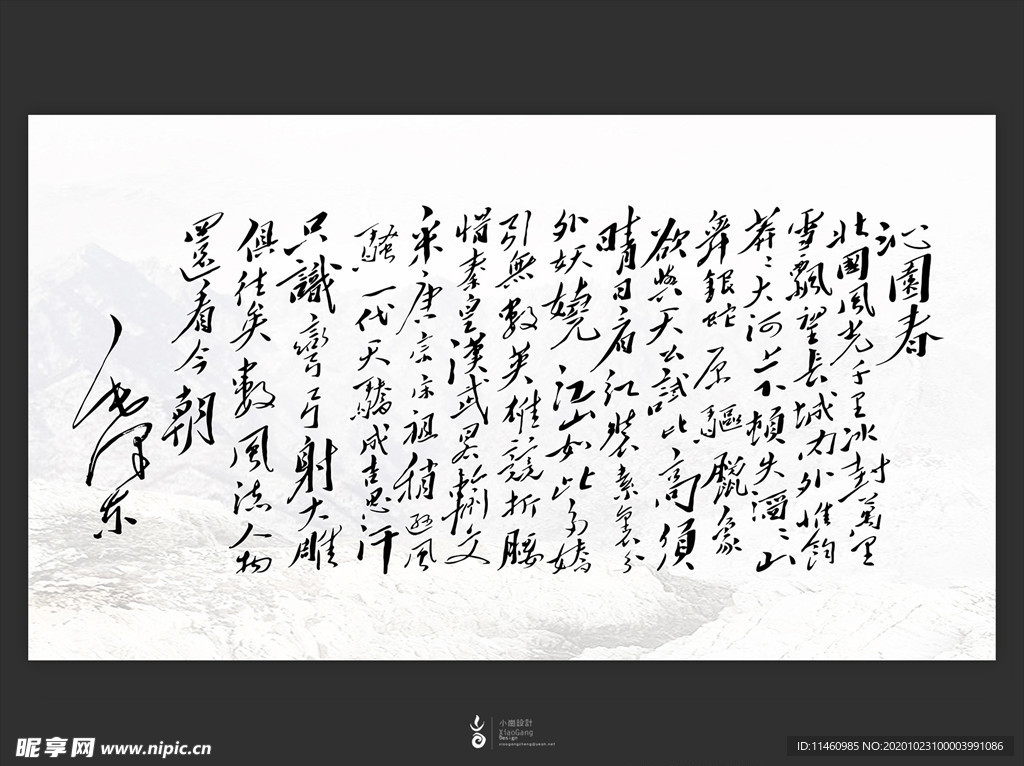 沁園春
北國風光千里冰封萬里
雪飄望長城內外惟餘
莽〻大河上下頓失滔〻山
舞銀蛇原驅臘象
欲與天公試比高須
晴日看紅裝素裹分
外妖嬈江山如此多嬌
引無數英雄競折腰
惜秦皇漢武略輸文
采唐宗宋祖稍遜風
騷一代天驕成吉思汗
只識彎弓射大雕
俱往矣數風流人物
還看今朝
毛澤東
小崗設計
XiaoGang
Design
昵享网 www.nipic.cn
ID:11460985 NO:20201023100003991086